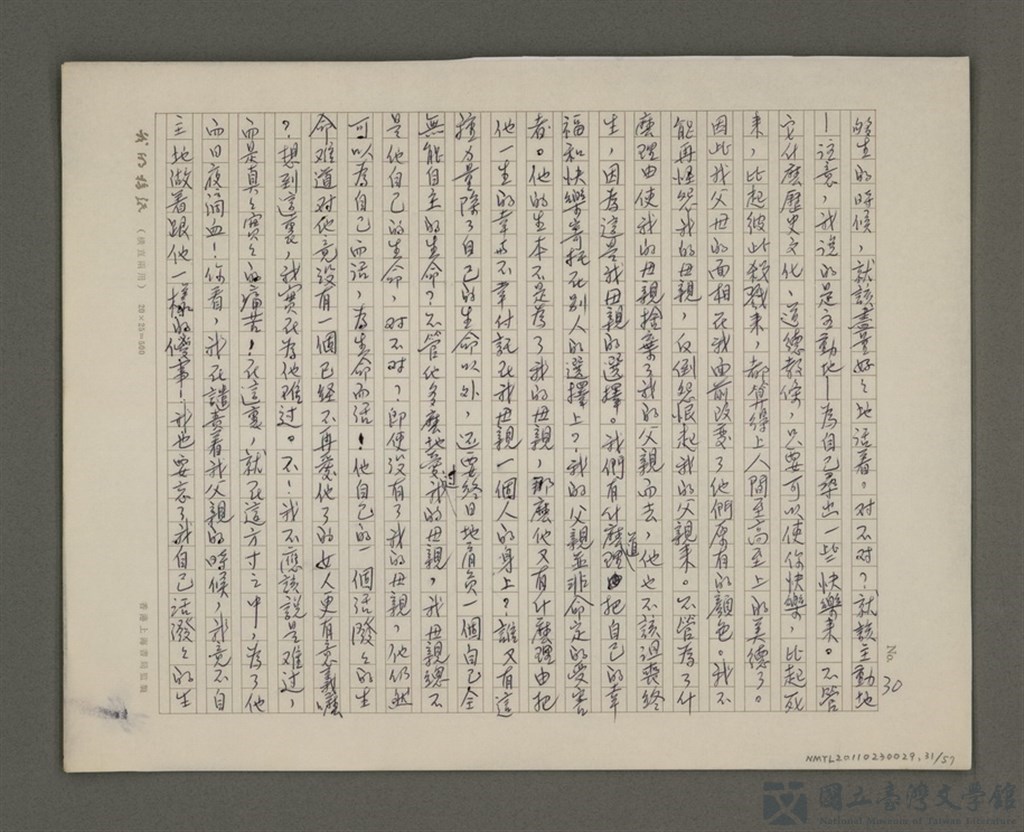 No. 30
夠生的時候，就該盡量好々地活着。对不对？就該主動地
—注意，我說的是主動地—為自己尋出一些快樂来。不管
它什麽歷史文化、道德教條，只要可以使你快樂，比起死
来，比起彼此殘殺来，都算得上人間至高至上的美德了。
因此我父母的面相在我面前改变了他們原有的顏色。我不
能再怪怨我的母親，反倒怨恨起我的父親来。不管為了什
麽理由使我的母親捨棄了我的父親而去，他也不該沮喪終
生，因為這是我母親的選擇。我們有什麽理由把自己的幸
道
福和快樂寄托在別人的選擇上？我的父親並非命定的受害
者。他的生本不是為了我的母親，那麽他又有什麽理由把
他一生的幸与不幸付託在我母親一個人的身上？誰又有這
種力量除了自己的生命以外，还要終日地肩負一個自己全
無能自主的生命？不管他多麽地愛过我的母親，我母親總不
是他自己的生命，对不对？即使沒有了我的母親，他仍然
可以為自己而活，為生命而活！他自己的一個活潑々的生
命难道对他竟沒有一個已經不再愛他了的女人更有意義嚒
？想到這裏，我實在為他难过。不！我不應該說是难过，
而是真々實々的痛苦！在這裏，就在這方寸之中，為了他
而日夜淌血！你看，我在譴責着我父親的時候，我竟不自
主地做着跟他一樣的傻事！我也要忘了我自己活潑々的生
我的稿紙 （橫直兩用） 20×25=500
香港上海書局監製
NMTL20110230029, 31/57
國立臺灣文學館
National Museum of Taiwan Literature